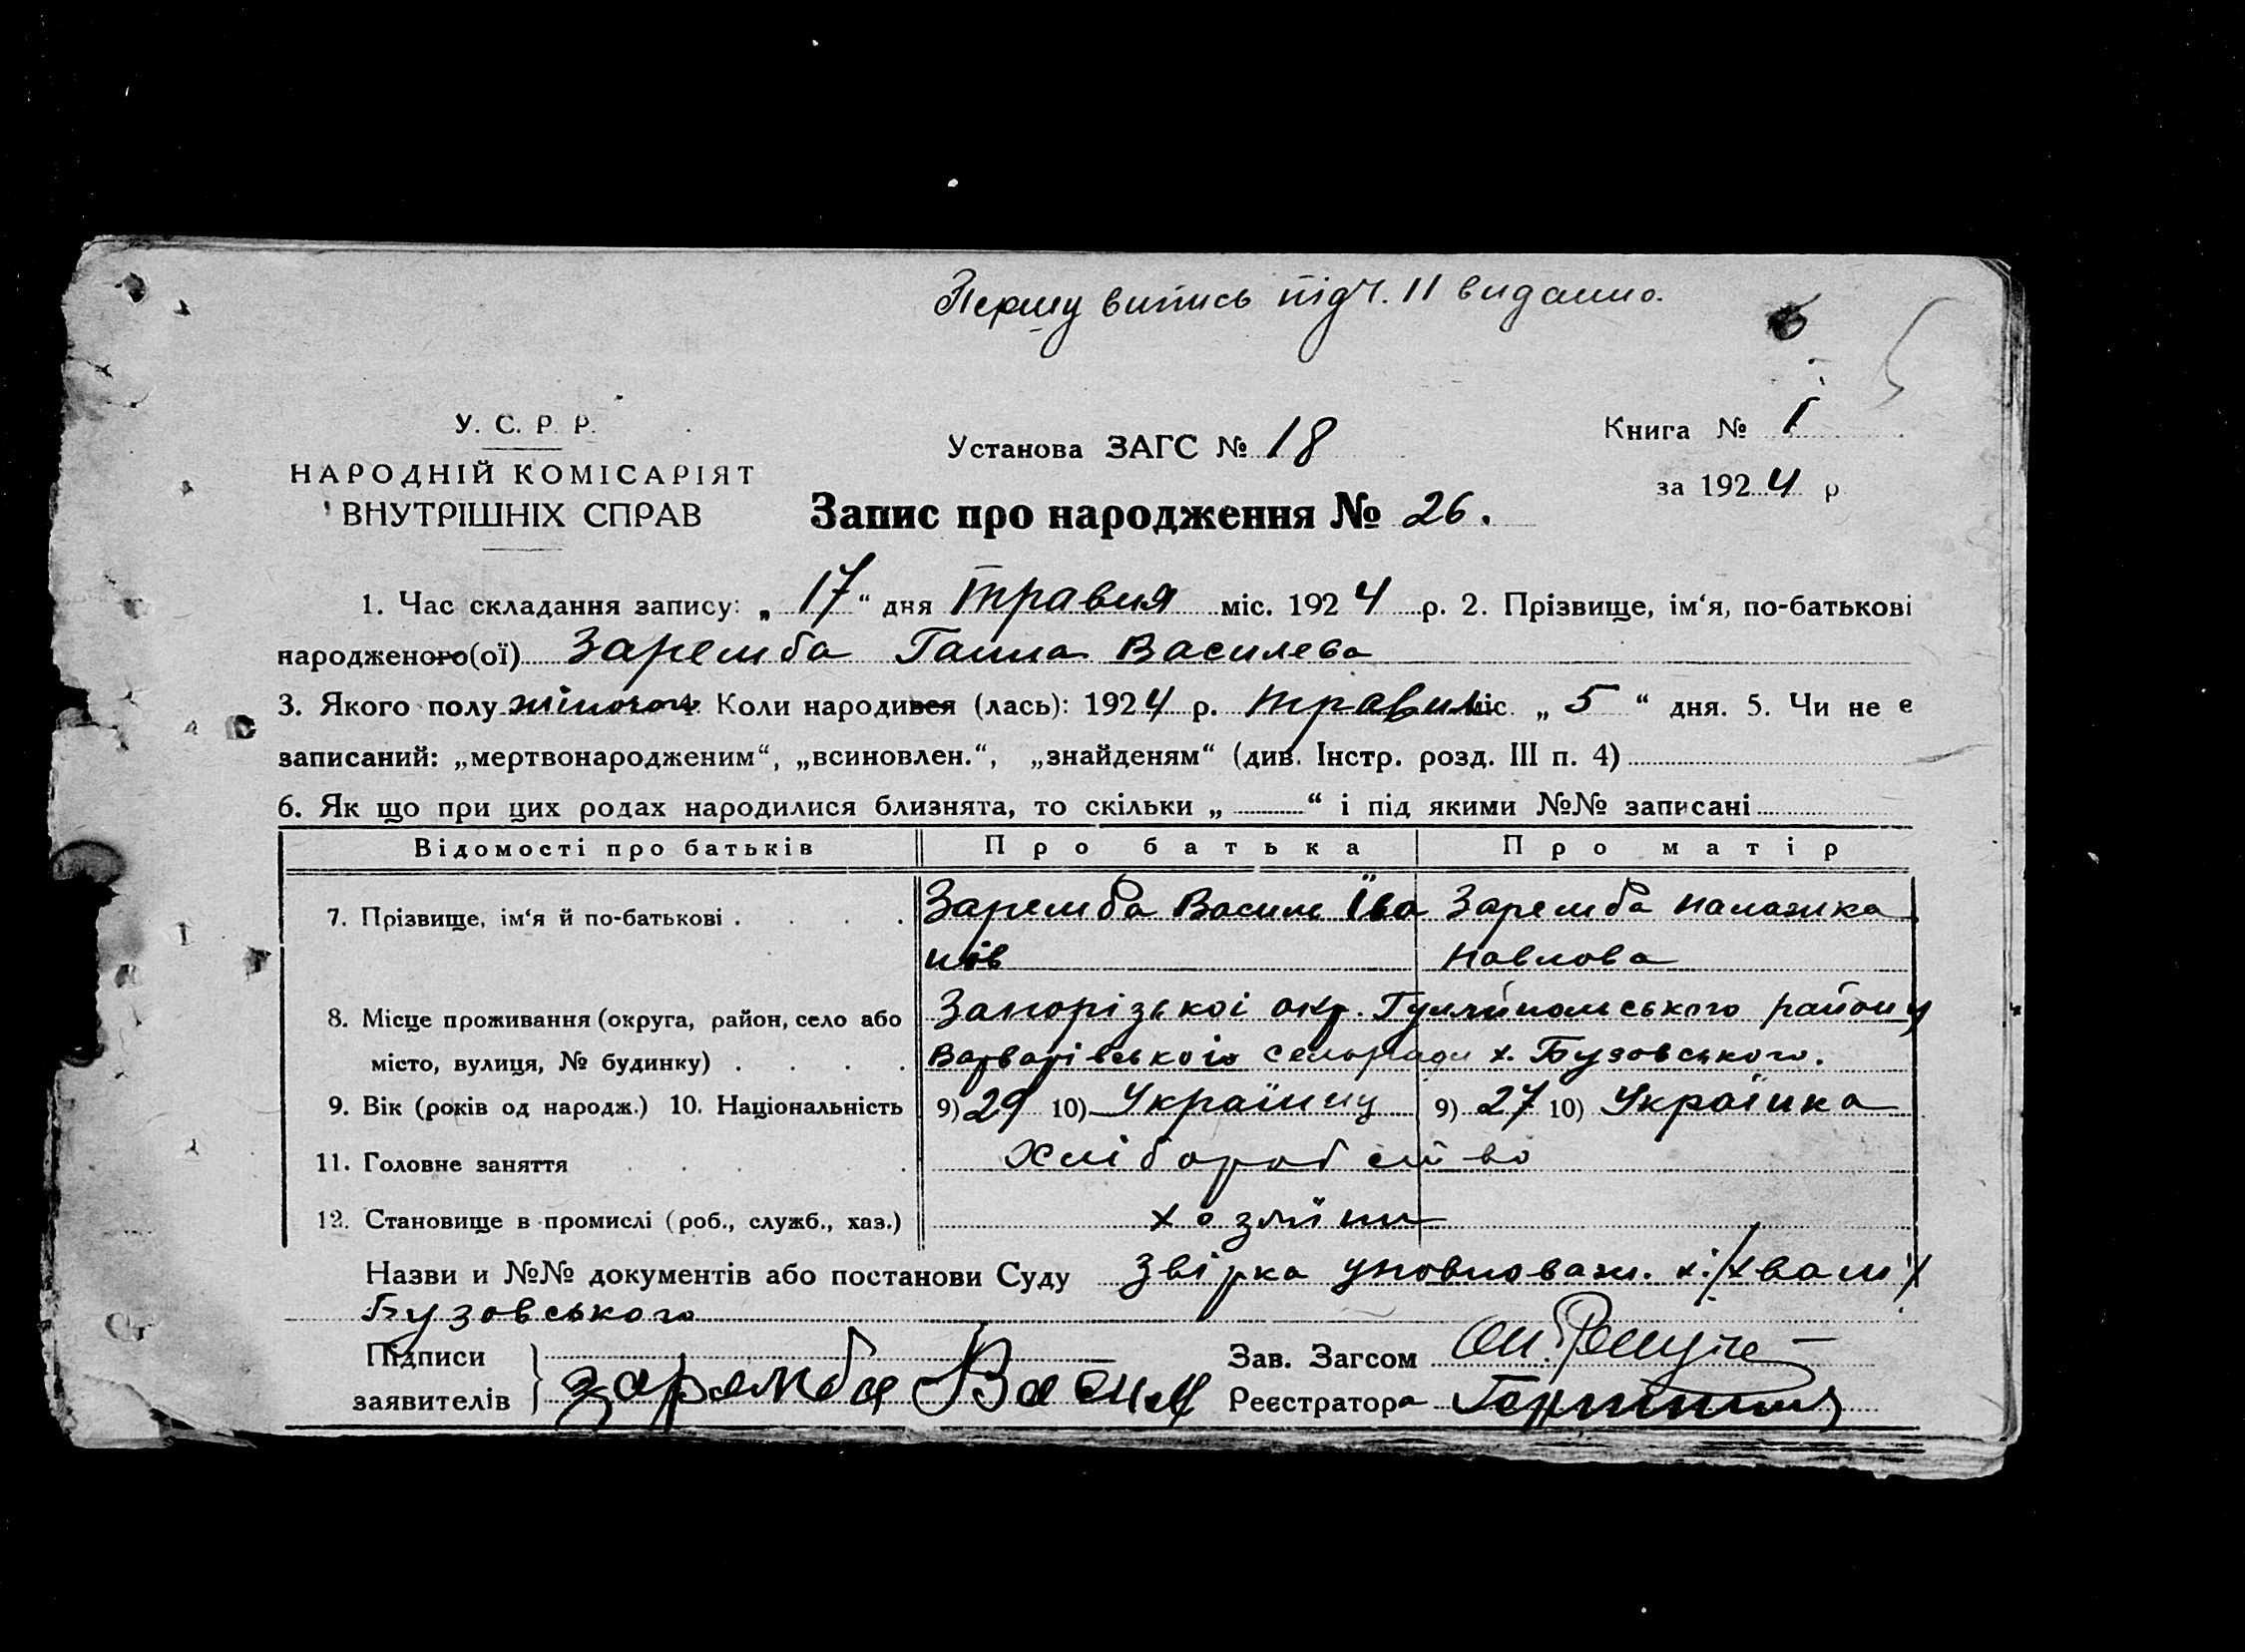 Першу випись під ч. 11 видано.
У. С. Р. Р.
НАРОДНІЙ КОМІСАРІЯТ
ВНУТРІШНІХ СПРАВ
Установа ЗАГС № 18
Книга № 1
за 1924 р
Запис про народження № 26.
1. Час складання запису: „ 17 “ дня травня міс. 1924 р. 2. Прізвище, ім‘я, по-батькові
народженого(ої) Заремба Ганна Василева
3. Якого полу жіночог 4. Коли народився (лась): 1924 р. травня міс. „ 5 “ дня. 5. Чи не є
записаний: „мертвонародженим“, „всиновлен.“, „знайденям“ (див. Інстр. розд. III п. 4)
6. Як що при цих родах народилися близнята, то скільки „ “ і під якими №№ записані
Відомості про батьків Про батька Про матір
7. Прізвище, ім‘я й по-батькові . . . . Заремба Василь Іва Заремба Палажка
нів Павлова
8. Місце проживання (округа, район, село або Запорізької окр. Гуляйпольського району
місто, вулиця, № будинку) . . . . Варварівської сельради х. Бузовського.
9. Вік (років од народж.) 10. Національність 9) 29 10) Українц 9) 27 10) Українка
11. Головне заняття . . . . Хліборобство
12. Становище в промислі (роб., служб., хаз.) хозяїни
Назви и №№ документів або постанови Суду Звірка уповноваж.
Бузовського
Підписи
заявителів } заремба Васил
Зав. Загсом
Реєстратора